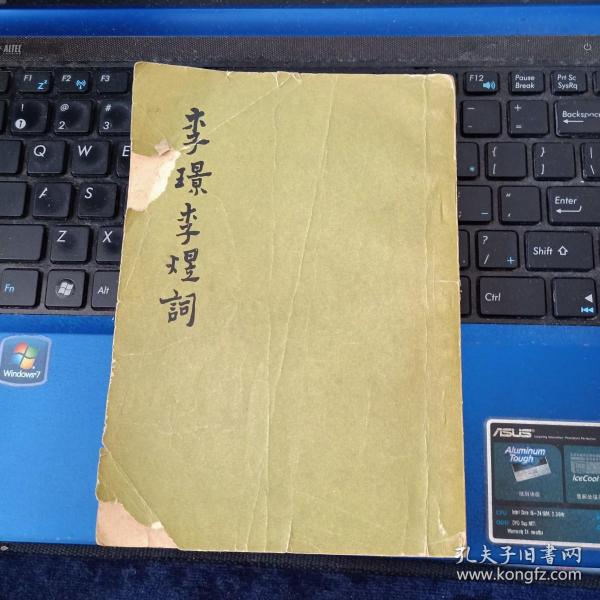 李璟李煜詞
ALTEC
F1
F2
F3
F12
Pause
Break
Prt Sc
SysRq
!
1
@
2
#
3
Backspace
Q
W
E
A
S
Enter
Z
X
?
/
Shift
Fn
Alt
Ctrl
Windows 7
ASUS
Aluminum
Tough
IceCool
CPU
Warranty
孔夫子旧书网
www.kongfz.com